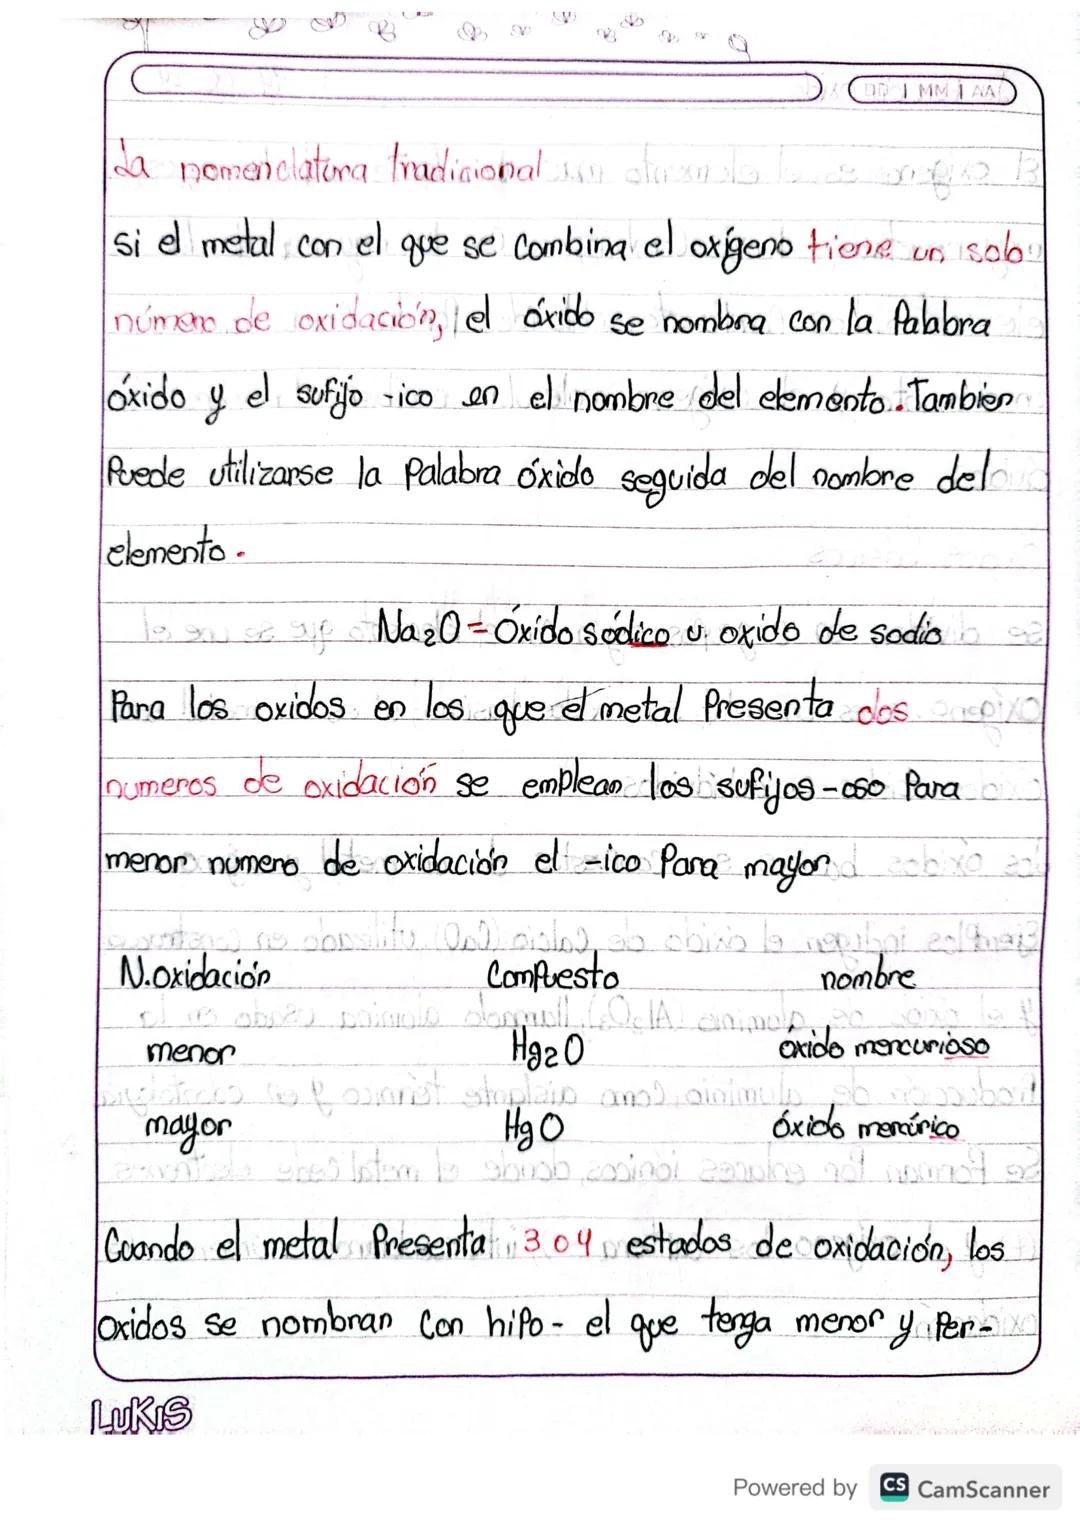 DD | MM | AA
La nomenclatura tradicional
si el metal con el que se combina el oxígeno tiene un solo
número de oxidación, el óxido se nombra con la Palabra
óxido y el sufijo -ico en el nombre del elemento. Tambien
Puede utilizarse la Palabra óxido seguida del nombre del
elemento.
Na2O = Óxido sódico u oxido de sodio
Para los oxidos en los que el metal Presenta dos
numeros de oxidación se emplean los sufijos -oso Para
menor numero de oxidación el -ico Para mayor
N.oxidación Compuesto nombre
menor Hg2O óxido mercurioso
mayor HgO óxido mercúrico
Cuando el metal Presenta 3 o 4 estados de oxidación, los
oxidos se nombran con hipo- el que tenga menor y Per-
LUKIS
Powered by CS CamScanner